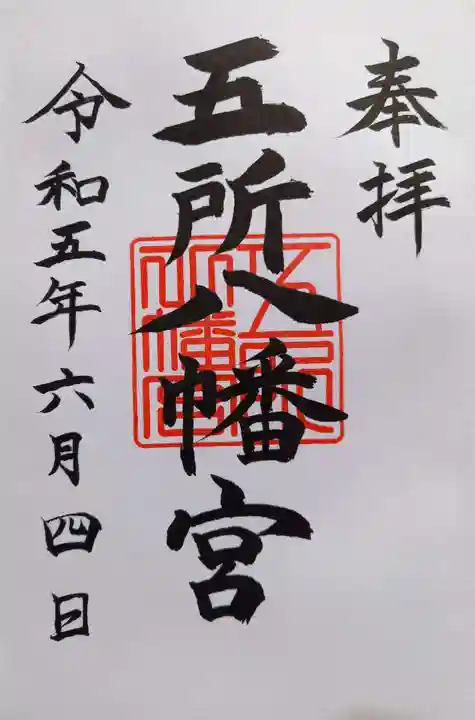 奉拝
五所八幡宮
令和五年六月四日